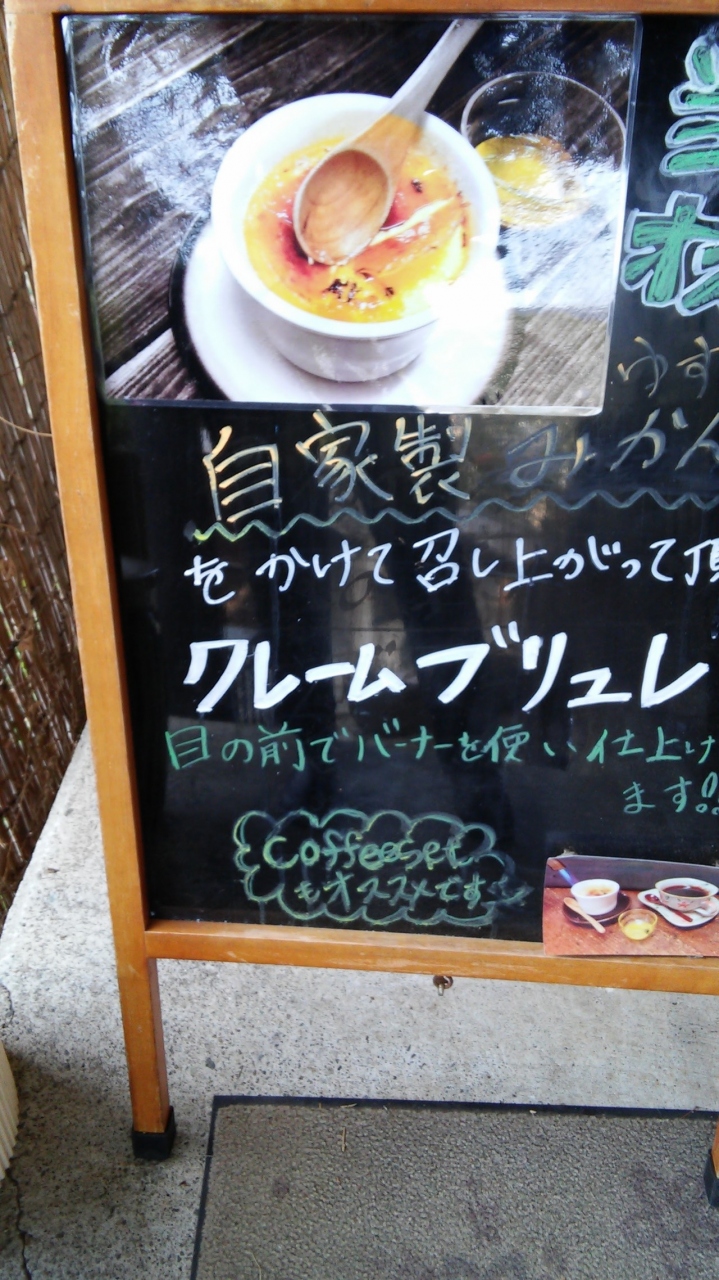 ゆず
自家製みかん
をかけて召し上がって頂
クレームブリュレ
目の前でバーナーを使い仕上げ
ます!!
Coffeeset
もオススメです